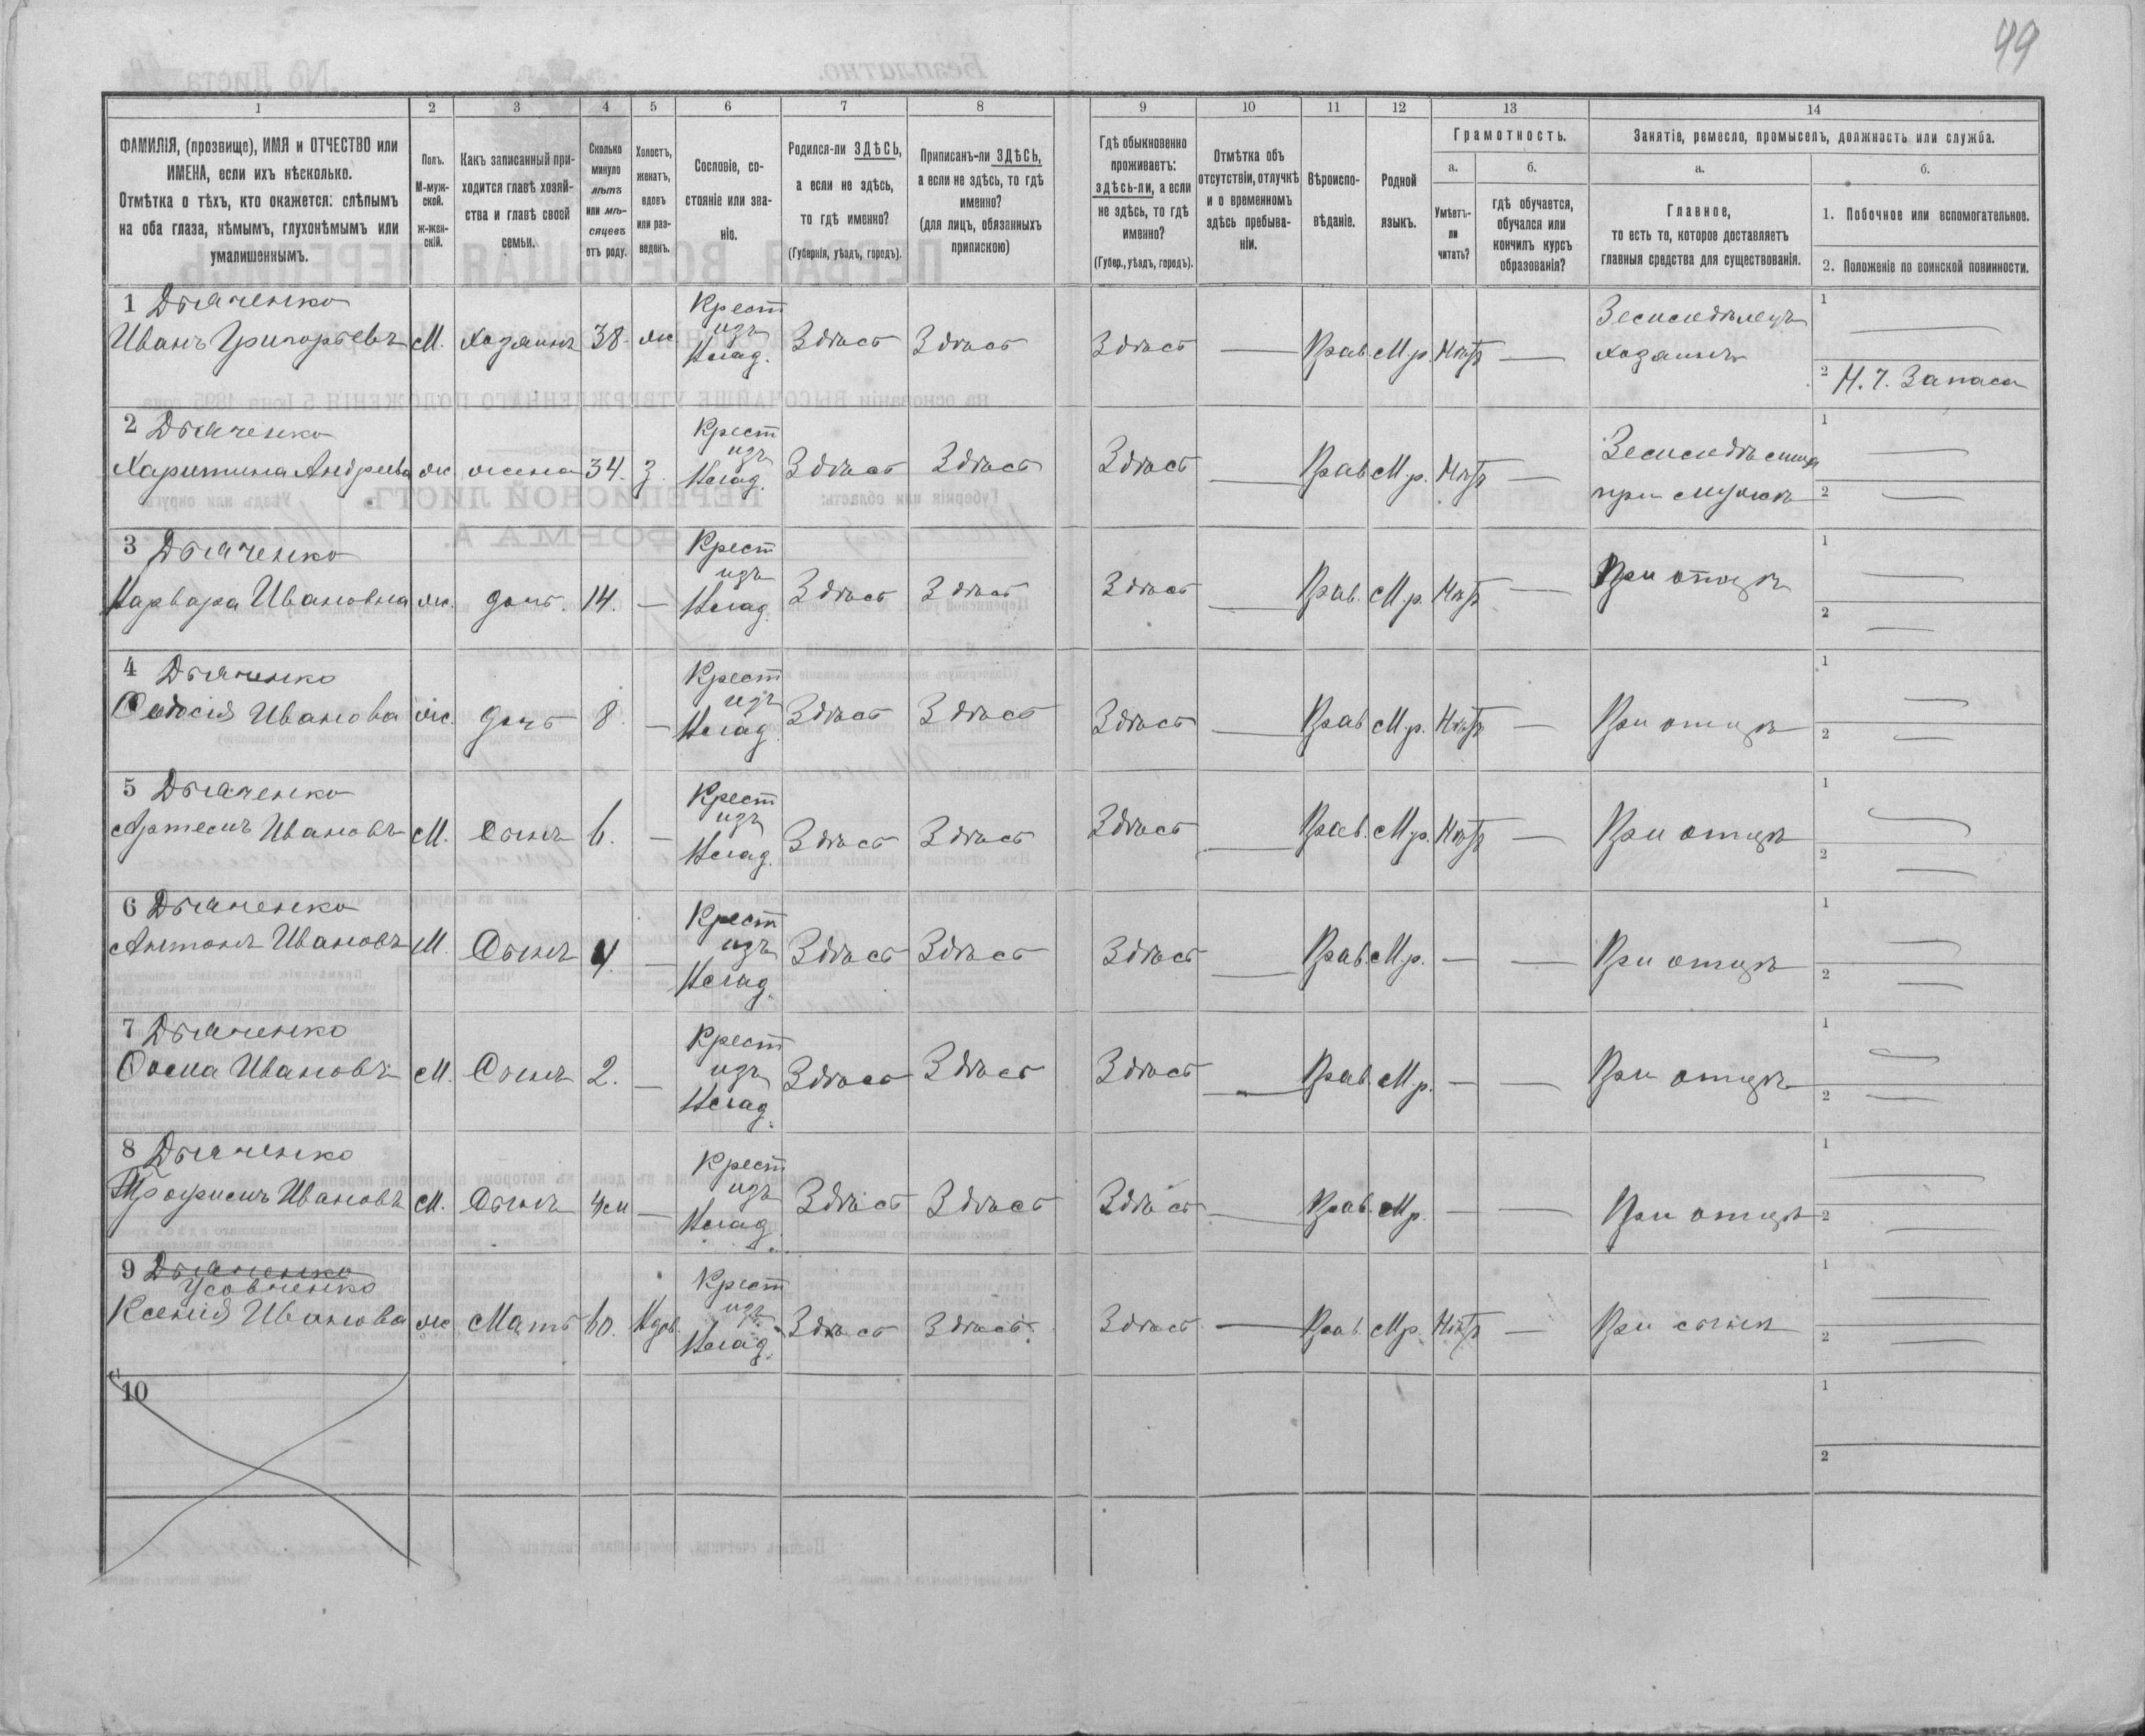 99
1 2 3 4 5 6 7 8 9 10 11 12 13 14
ФАМИЛІЯ, (прозвище), ИМЯ и ОТЧЕСТВО или ИМЕНА, если ихъ нѣсколько.
Отмѣтка о тѣхъ, кто окажется: слѣпымъ на оба глаза, нѣмымъ, глухонѣмымъ или умалишеннымъ.
Полъ. М-муж-ской. Ж-жен-скій.
Какъ записанный при-ходится главѣ хозяй-ства и главѣ своей семьи.
Сколько минуло лѣтъ или мѣ-сяцевъ отъ роду.
Холостъ, женатъ, вдовъ или раз-веденъ.
Сословіе, со-стояніе или зва-ніе.
Родился-ли ЗДѢСЬ, а если не здѣсь, то гдѣ именно?
(Губернія, уѣздъ, городъ).
Приписанъ-ли ЗДѢСЬ, а если не здѣсь, то гдѣ именно?
(для лицъ, обязанныхъ припискою)
Гдѣ обыкновенно проживаетъ: здѣсь-ли, а если не здѣсь, то гдѣ именно?
(Губер., уѣздъ, городъ).
Отмѣтка объ отсутствіи, отлучкѣ и о временномъ здѣсь пребыва-ніи.
Вѣроиспо-вѣданіе.
Родной языкъ.
Грамотность.
а. Умѣетъ-ли читать?
б. гдѣ обучается, обучался или кончилъ курсъ образованія?
Занятіе, ремесло, промыселъ, должность или служба.
а. Главное, то есть то, которое доставляетъ главныя средства для существованія.
б.
1. Побочное или вспомогательное.
2. Положеніе по воинской повинности.
1 Дьяченко
Иванъ Григорьевъ М. хозяинъ 38. ж. Крест изъ Влад. Здѣсь Здѣсь Здѣсь — Прав. М.р. Нѣтъ — Земледѣлецъ хозяинъ 1 — 2 Н. Ч. Запаса
2 Дьяченко
Харитина Андреева ж. жена 34. З. Крест изъ Влад. Здѣсь Здѣсь Здѣсь — Прав М.р. Нѣтъ — при мужѣ 1 — 2 —
3 Дьяченко
Варвара Ивановна ж. дочь. 14. — Крест изъ Влад. Здѣсь Здѣсь Здѣсь — Прав. М.р. Нѣтъ — При отцѣ 1 — 2 —
4 Дьяченко
Федосія Иванова ж. дочь 8. — Крест изъ Влад. Здѣсь Здѣсь Здѣсь — Прав М.р. Нѣтъ — При отцѣ 1 — 2 —
5 Дьяченко
Артемъ Ивановъ М. Сынъ 6. — Крест изъ Влад. Здѣсь Здѣсь Здѣсь — Прав. М.р. Нѣтъ — При отцѣ 1 — 2 —
6 Дьяченко
Антонъ Ивановъ М. Сынъ 4. — Крест изъ Влад. Здѣсь Здѣсь Здѣсь — Прав. М.р. — — При отцѣ 1 — 2 —
7 Дьяченко
Фома Ивановъ М. Сынъ 2. — Крест изъ Влад. Здѣсь Здѣсь Здѣсь — Прав. М.р. — — При отцѣ 1 — 2 —
8 Дьяченко
Трофимъ Ивановъ М. Сынъ 4 м — Крест изъ Влад. Здѣсь Здѣсь Здѣсь — Прав. М.р. — — При отцѣ 1 — 2 —
9 Дьяченко
Усовченко
Ксенія Иванова ж. Мать 60. Вдов. Крест изъ Влад. Здѣсь Здѣсь Здѣсь — Прав. М.р. Нѣтъ — При сынѣ 1 — 2 —
10 1 2